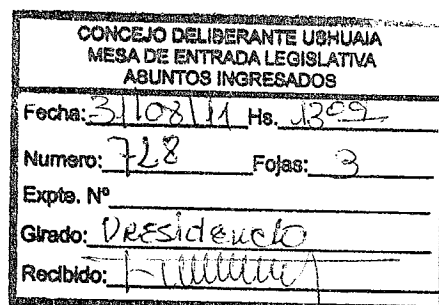 CONCEJO DELIBERANTE USHUAIA
MESA DE ENTRADA LEGISLATIVA
ASUNTOS INGRESADOS
Fecha: 31/08/11 Hs. 1302
Numero: 728 Fojas: 3
Expte. Nº
Girado: Presidencia
Recibido: